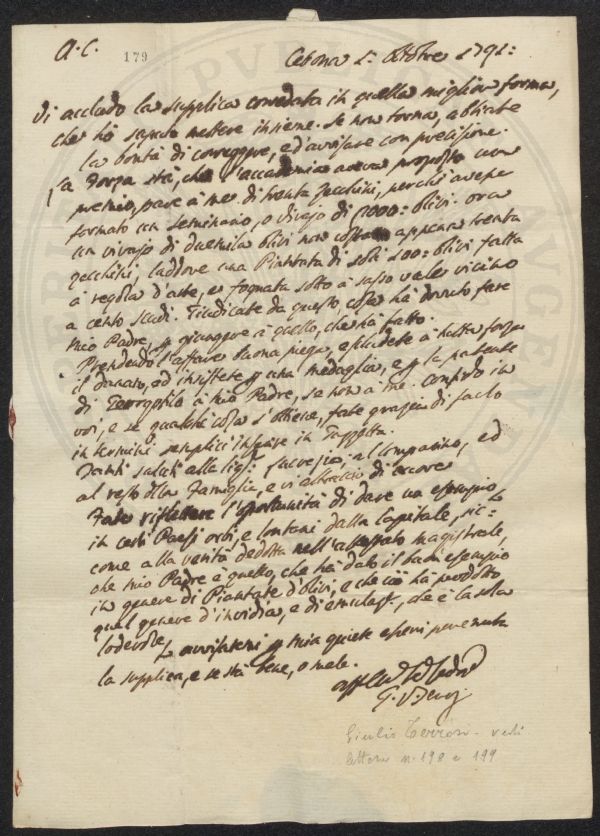 A. C.
179
Cetona 1: Ottobre 1791:
Vi accludo la supplica corredata in quella miglior forma,
che hò saputo mettere insieme. Se non torna, abbiate
la bontà di correggere, ed avvisare con precisione.
La Forza stà, che l'accademia aveva proposto un
premio, pare à me di trenta zecchini, perchi avesse
formato un Seminario, o vivajo di olivi. ora
un vivajo di duemila olivi non costa appena trenta
zecchini, laddove una Piantata di soli 100: olivi fatta
à regola d'arte, e fognata sotto à sasso vale vicino
a cento scudi. Giudicate da questo cosa hà dovuto fare
mio Padre, p giungere à quello, che hà fatto.
Prendendo l'affare buona piega, escludete à tutta forza
il danaro, ed insistete p una medaglia, e p la patente
di Georgofilo à mio Padre, se non à me. Confido in
voi, e se qualche cosa s'ottiene, fate grazia di farlo
in termini semplici inserire in Gazzetta.
Tanti saluti alla Sig.ª Lucrezia, al Comparino, ed
al resto della Famiglia, e vi abbraccio di cuore
Fate riflettere l'opportunità di dare un esempio
in certi Paesi orbi, e lontani dalla Capitale, sic=
come alla verità dedotta nell'attestato magistrale,
che mio Padre è quello, che hà dato il buon esempio
in genere di Piantate d'olivi, e che ciò hà prodotto
quel genere d'invidia, e di emulaz., che è la sola
lodevole, avvisatemi p mia quiete esservi pervenuta
la supplica, e se stà bene, o male.
Giulio Terrosi - vedi
lettere n. 198 e 199